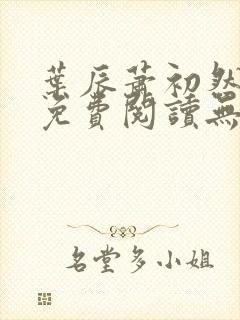 葉辰蕭初然
免費閱讀無
名堂多小姐